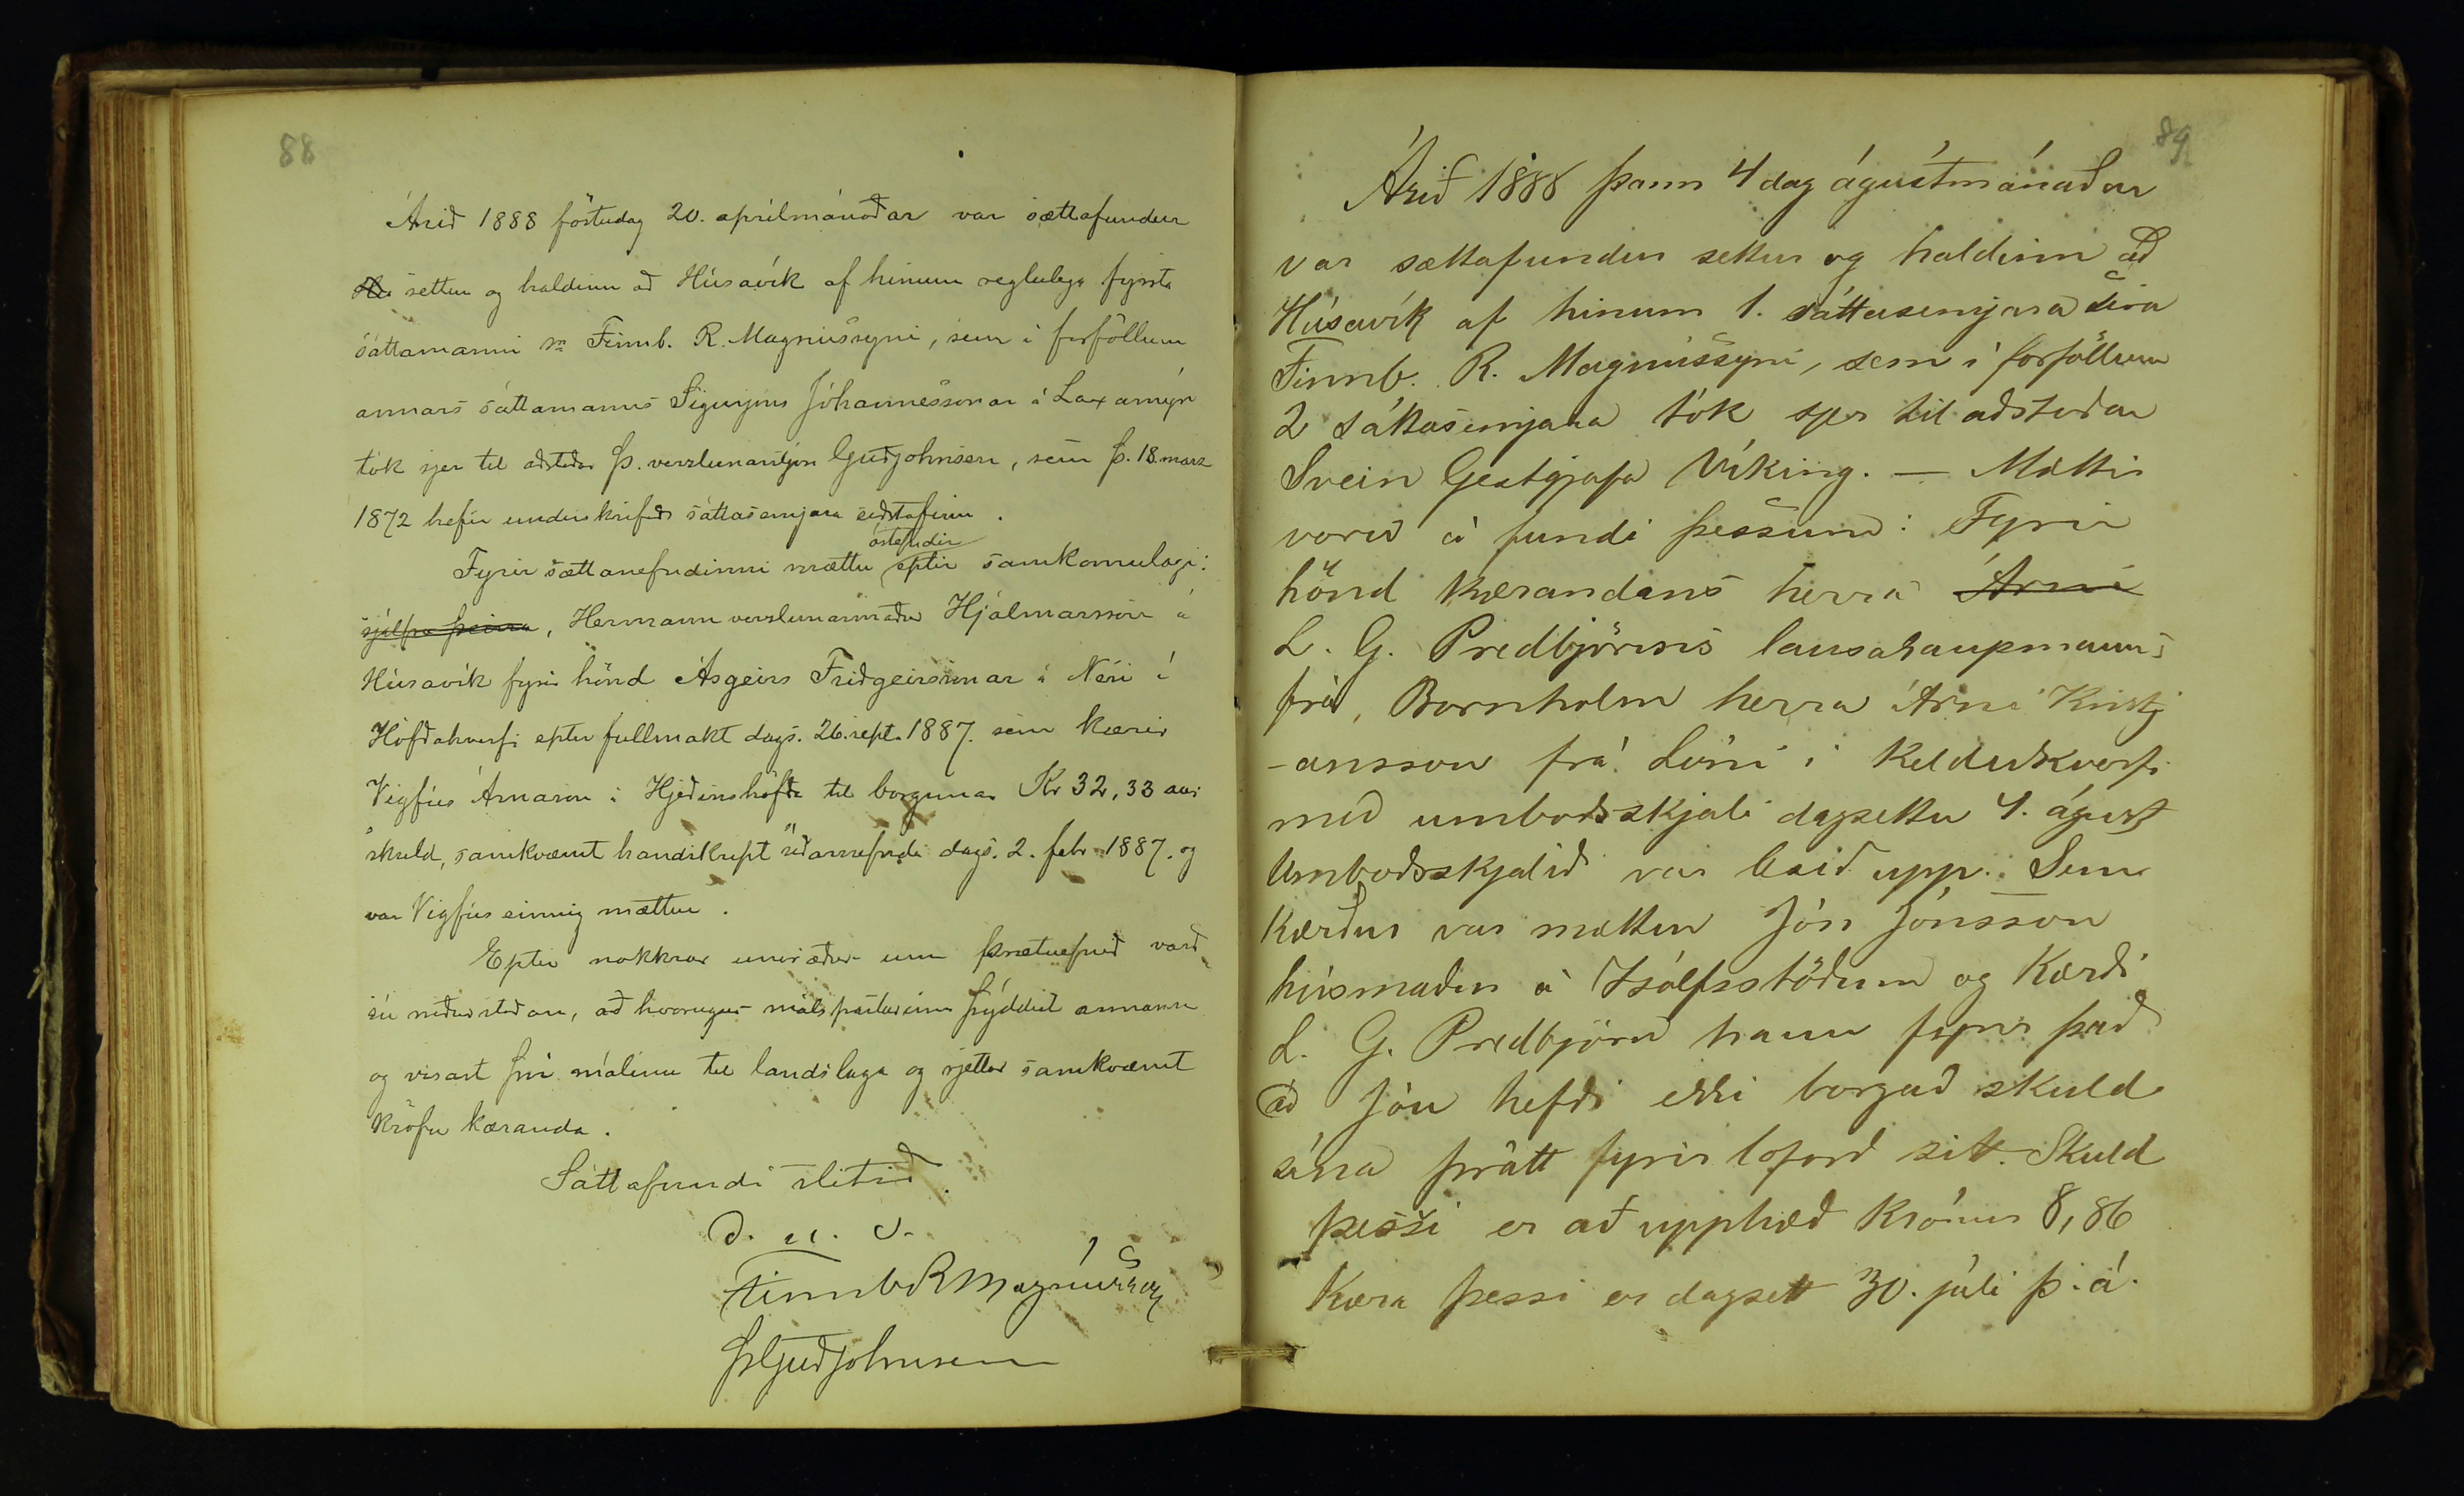 88
Árið 1888 föstudag 20. aprílmánaðar var sættafundur
settur og haldinn að Húsavík af hinum reglulega fyrsta
sáttamanni sr Finnb. R. Magnússyni, sem í forföllum
annars sáttamanns Sigurjóns Jóhannessonar á Laxamýri
tók sjer til aðstoðar Þ. verzlunarstjóra Guðjohnsen, sem þ. 18. marz
1872 hefir undirskrifað sáttasemjara eiðstafinn.
óstefndir
Fyrir sættanefndinni mættu eptir samkomulagi:
sjálfra þeirra, Hermann verzlunarmaður Hjálmarsson á
Húsavík fyrir hönd Ásgeirs Friðgeirssonar á Nesi í
Höfðahverfi eptir fullmakt dags. 26. sept. 1887. sem kærir
Vigfús Árnason í Hjeðinshöfða til borgunar Kr 32,33 aur
skuld, samkvæmt handskript síðarnefnds dags. 2. febr 1887. og
var Vigfús einnig mættur.
Eptir nokkrar umræður um þrætuefnið varð
sú niðurstaðan, að hvorugur málsparturinn þýddist annann
og vísast því málinu til landslaga og rjettar samkvæmt
kröfu kæranda.
Sáttafundi slitið.
D. u. s.
Finnb R Magnússon
Þ Guðjohnsen
89
Árið 1888 þann 4 dag ágústmánaðar
var sættafundur settur og haldinn að
Húsavík af hinum 1. sáttasemjara síra
Finnb. R. Magnússyni, sem í forföllum
2 sáttasemjara tók sjer til aðstoðar
Svein Gestgjafa Víking. — Mættir
voru á fundi þessum: Fyrir
hönd kærandans herra Árni
L. G. Predbjörns lausakaupmanns
frá Bornholm herra Árni Kristj
-ansson frá Lóni í Kelduhverfi
með umboðsskjali dagsettu 4. ágúst
Umboðsskjalið var lesið upp. Sem
kærður var mættur Jón Jónsson
húsmaður á Ísólfsstöðum og kærði
L. G. Predbjörn hann fyrir það
að Jón hefði ekki borgað skuld
sína þrátt fyrir loforð sitt. Skuld
þessi er að upphæð krónur 8,86
Kæra þessi er dagsett 30. júlí þ. á.